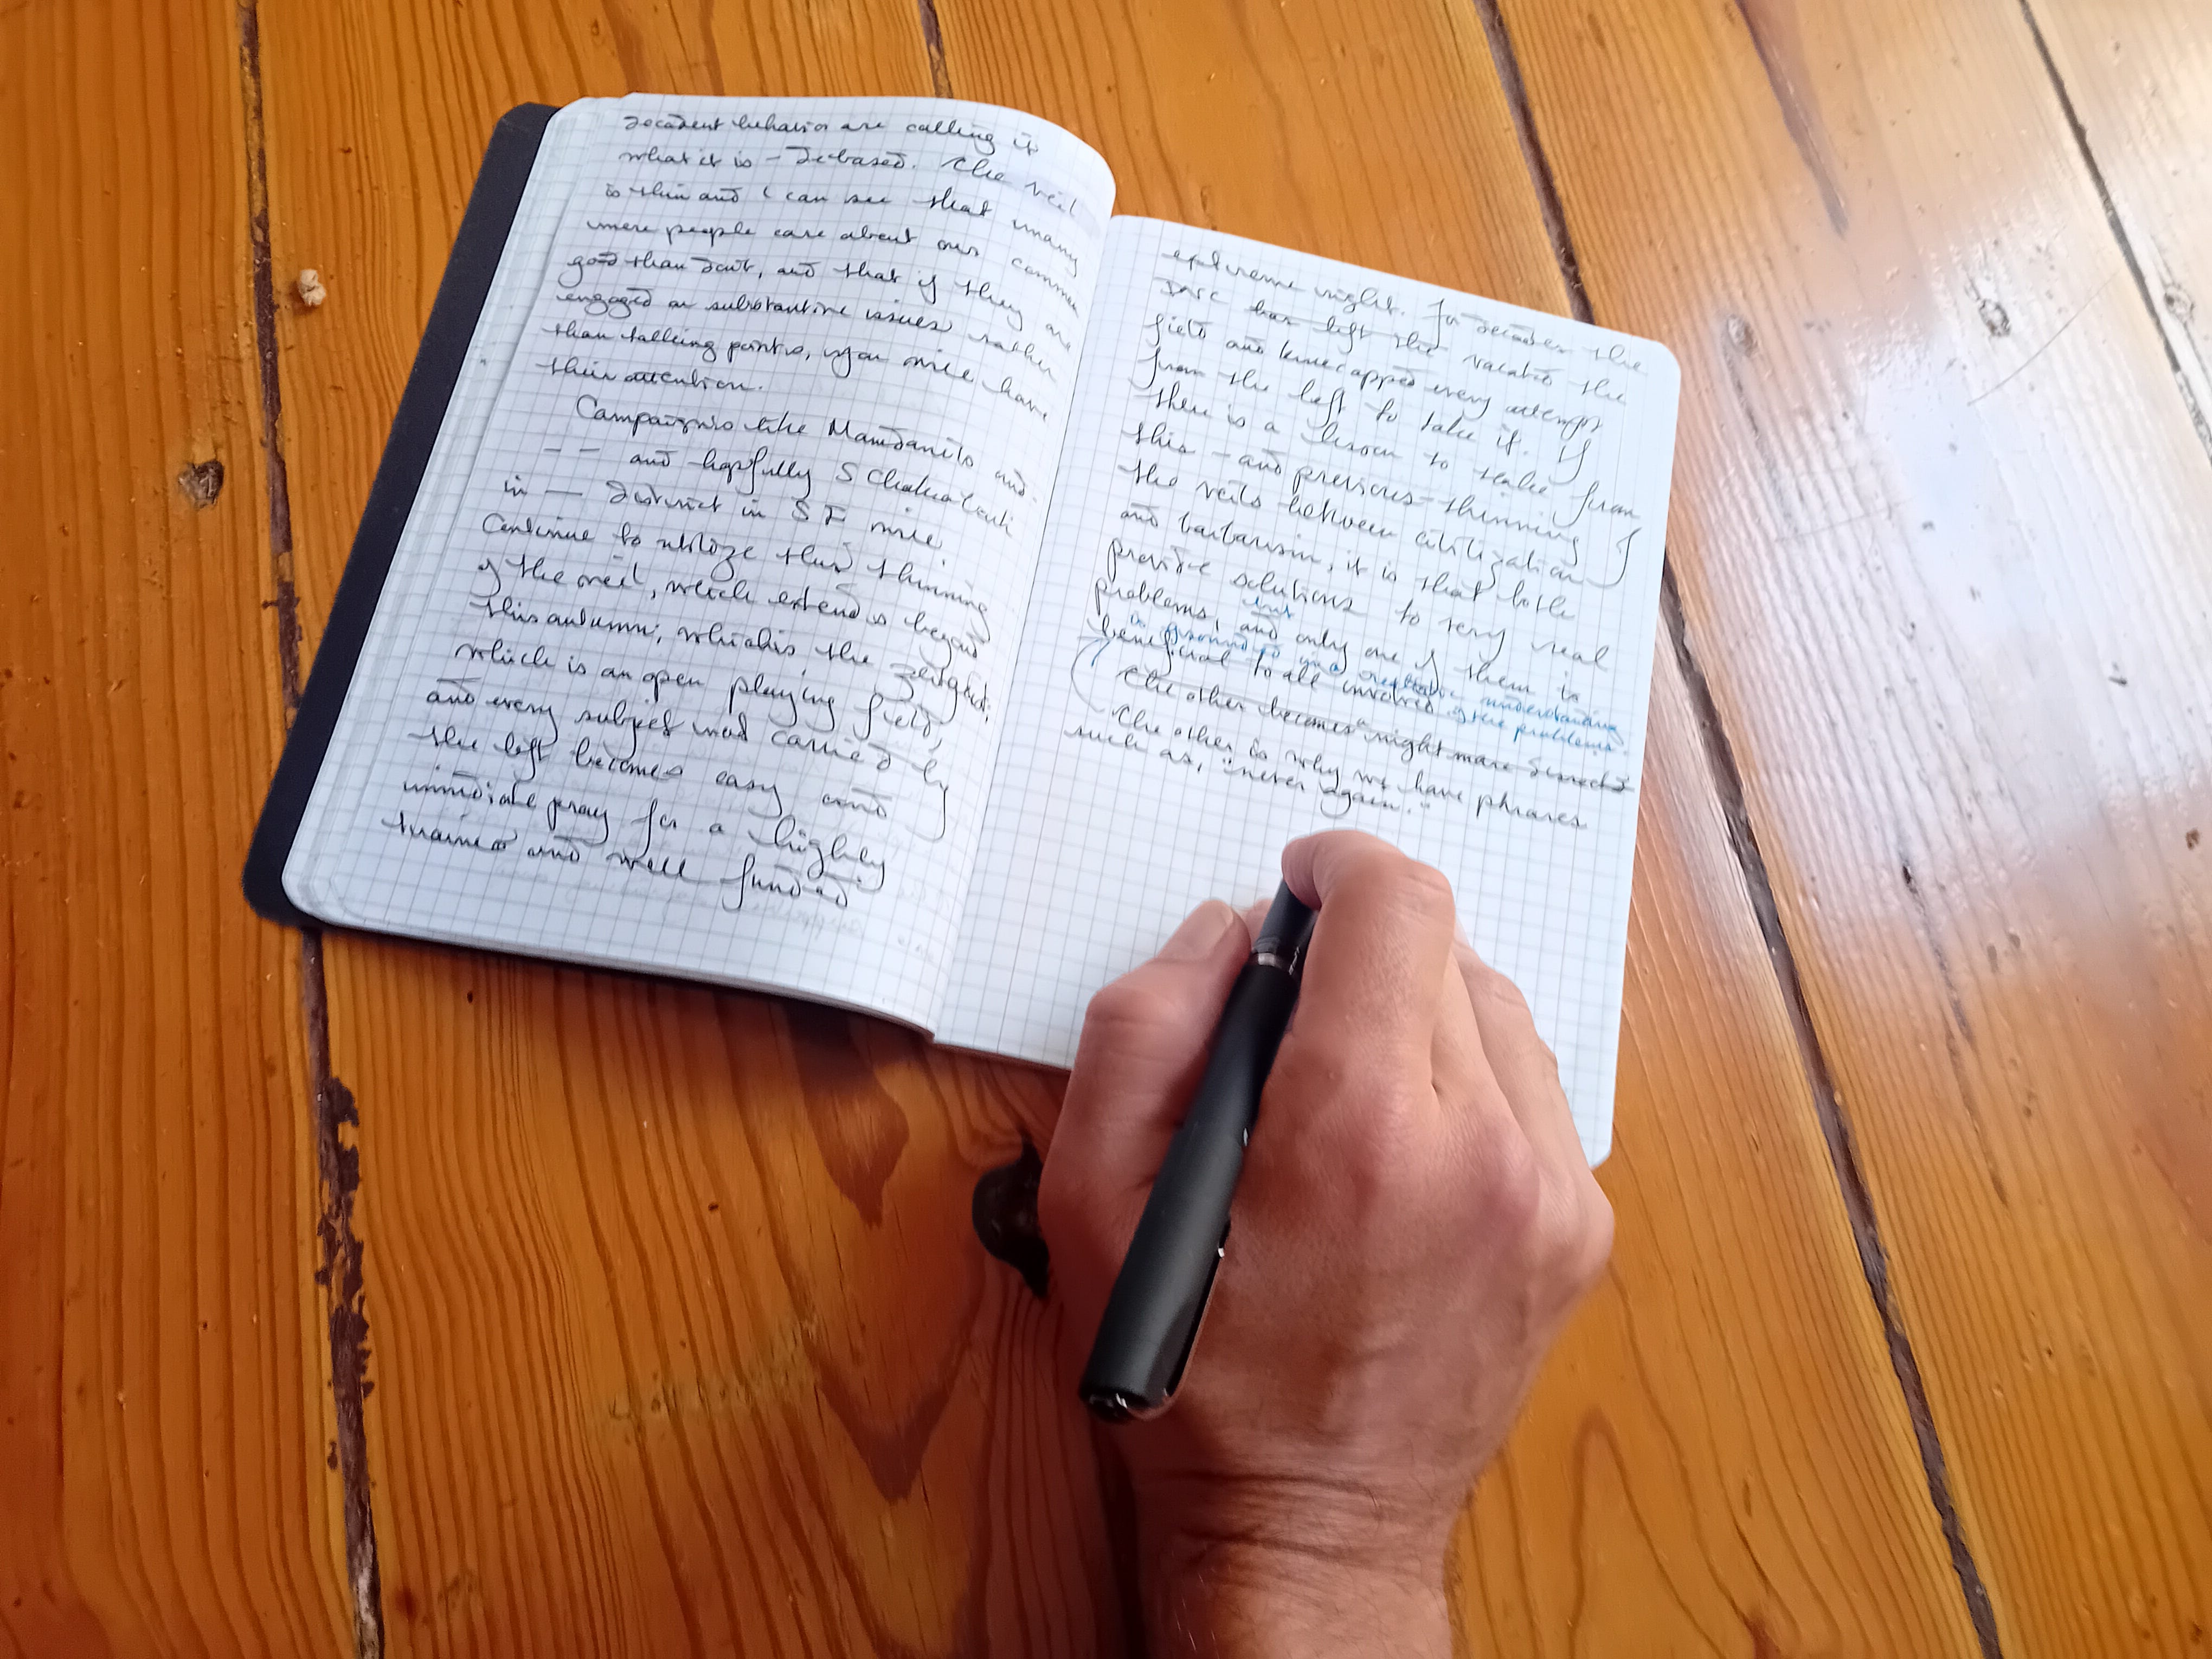 decadent behavior are calling it
what it is – debased. The veil
is thin and I can see that many
more people care about our common
good than don't, and that if they are
engaged on substantive issues rather
than talking points, you will have
their attention.
Campaigns like Mamdani's and
– – and hopefully S Chakrabarti
in — district in SF will
continue to utilize this thinning
of the veil, which extends beyond
this autumn; which is the zeitgeist;
which is an open playing field,
and every subject not carried by
the left becomes easy and
immidiate pray for a highly
trained and well funded
extreme right. For decades the
DNC has left the vacated the
field and kneecapped every attempt
from the left to take it. If
there is a lesson to take from
this – and previous – thinning of
the veils between civilization
and barbarism, it is that both
provide solutions to very real
problems, and but only one of them is
is grounded in a realistic understanding
of the problems.
beneficial to all involved
The other becomes a nightmare
The other is why we have phrases
such as, "never again."